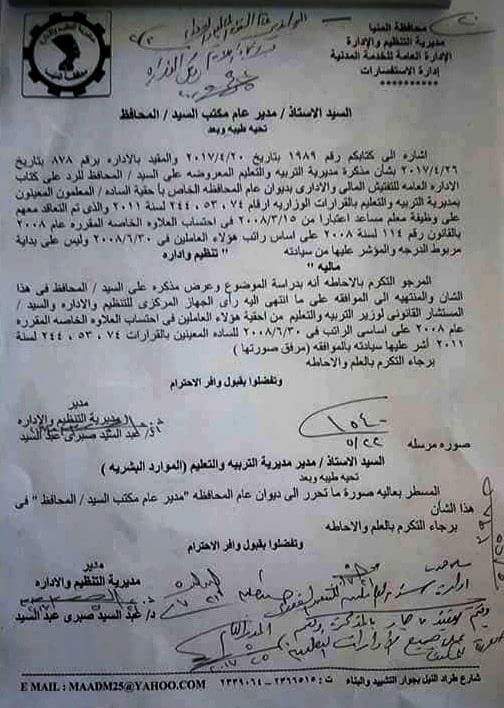 محافظة المنيا
مديرية التنظيم والإدارة
الإدارة العامة للخدمة المدنية
إدارة الاستفسارات
**********
السيد الاستاذ / مدير عام مكتب السيد / المحافظ
تحيه طيبه وبعد
اشاره الى كتابكم رقم ١٩٨٩ بتاريخ ٢٠١٧/٤/٢٠ والمقيد بالاداره برقم ٨٧٨ بتاريخ
٢٠١٧/٤/٢٦ بشأن مذكرة مديرية التربيه والتعليم المعروضه على السيد / المحافظ للرد على كتاب
الاداره العامه للتفتيش المالى والادارى بديوان عام المحافظه الخاص بأحقية الساده / المعلمون المعينون
بمديرية التربيه والتعليم بالقرارات الوزاريه ارقام ٧٤ ، ٥٣ ، ٢٤٤ لسنة ٢٠١١ والذى تم التعاقد معهم
على وظيفة معلم مساعد اعتبارا من ٢٠٠٨/٣/١٥ فى احتساب العلاوه الخاصه المقرره عام ٢٠٠٨
بالقانون رقم ١١٤ لسنة ٢٠٠٨ على اساس راتب هؤلاء العاملين فى ٢٠٠٨/٦/٣٠ وليس على بداية
مربوط الدرجه والمؤشر عليها من سيادته " تنظيم واداره
ماليه "
المرجو التكرم بالاحاطه أنه بدراسة الموضوع وعرض مذكره على السيد / المحافظ فى هذا
الشان والمنتهيه الى الموافقه على ما انتهى اليه رأى الجهاز المركزى للتنظيم والاداره والسيد /
المستشار القانونى لوزير التربيه والتعليم من احقية هؤلاء العاملين فى احتساب العلاوه الخاصه المقرره
عام ٢٠٠٨ على اساسى الراتب فى ٢٠٠٨/٦/٣٠ للساده المعينين بالقرارات ٧٤ ، ٥٣ ، ٢٤٤ لسنة
٢٠١١ أشر عليها سيادته بالموافقه ( مرفق صورتها )
برجاء التكرم بالعلم والاحاطه
وتفضلوا بقبول وافر الاحترام
مدير
مديرية التنظيم والاداره
د/ عبد السيد صبرى عبد السيد
١٥٤٠
٥/٢٢
صوره مرسله
السيد الاستاذ / مدير مديرية التربيه والتعليم (الموارد البشريه )
تحيه طيبه وبعد
المسطر بعاليه صورة ما تحرر الى ديوان عام المحافظه "مدير عام مكتب السيد / المحافظ " فى
هذا الشأن
برجاء التكرم بالعلم والاحاطه
وتفضلوا بقبول وافر الاحترام
مدير
مديرية التنظيم والاداره
د/ عبد السيد صبرى عبد السيد
شارع طراد النيل بجوار التشييد والبناء ت : ٢٣٦٦٥١٥ - ٢٣٣٩٠٦٤
E MAIL : MAADM25@YAHOO.COM